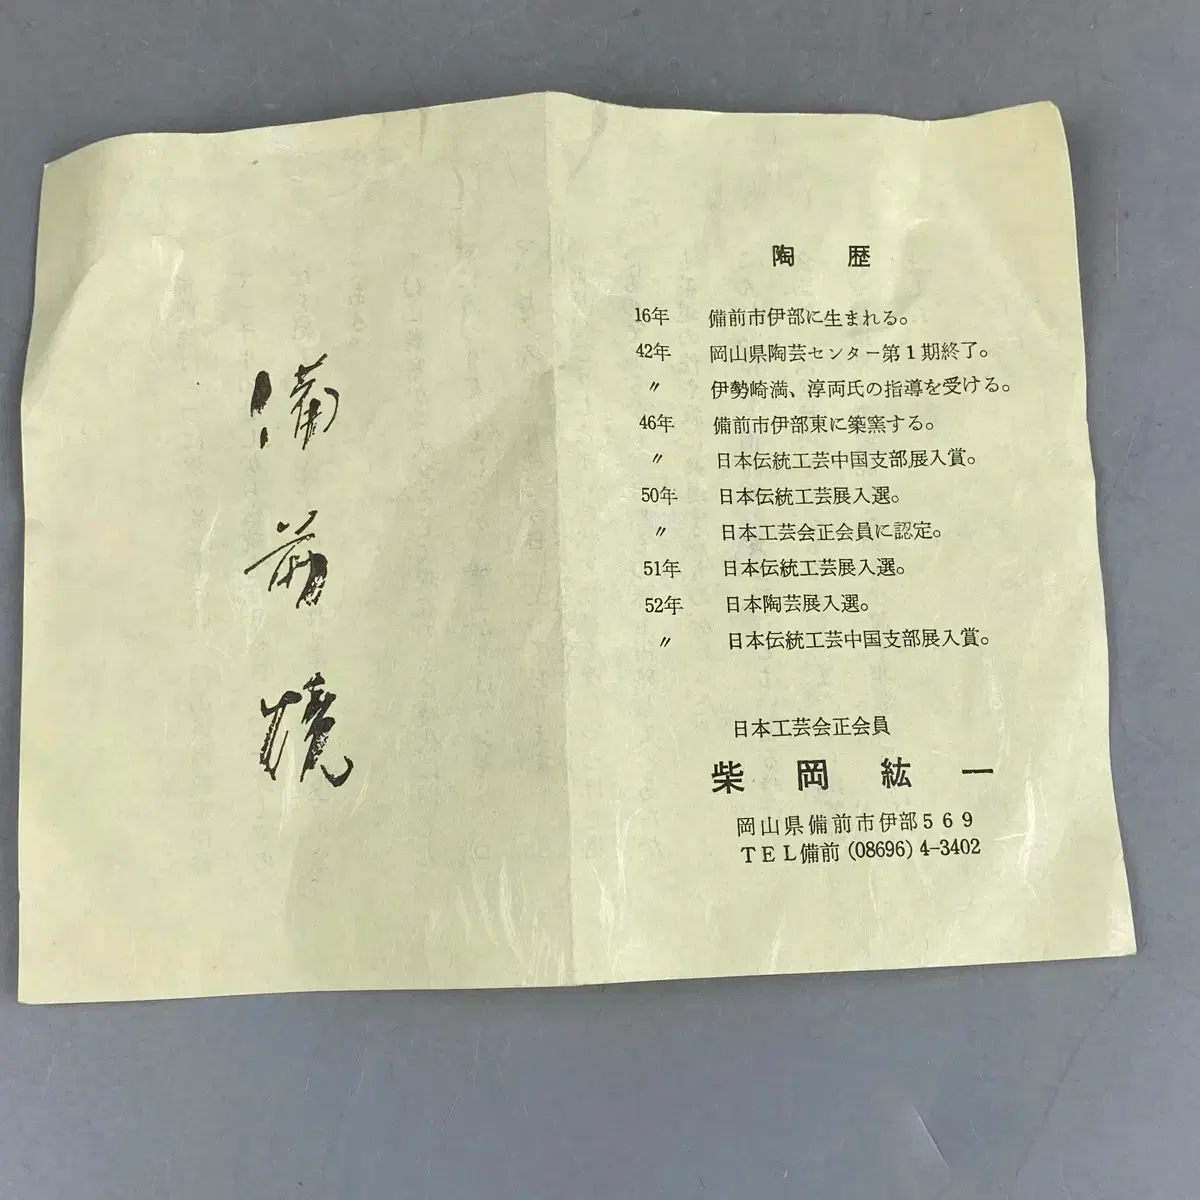 備前焼
陶歴
16年 備前市伊部に生まれる。
42年 岡山県陶芸センター第1期終了。
〃 伊勢崎満、淳両氏の指導を受ける。
46年 備前市伊部東に築窯する。
〃 日本伝統工芸中国支部展入賞。
50年 日本伝統工芸展入選。
〃 日本工芸会正会員に認定。
51年 日本伝統工芸展入選。
52年 日本陶芸展入選。
〃 日本伝統工芸中国支部展入賞。
日本工芸会正会員
柴岡紘一
岡山県備前市伊部569
TEL備前(08696)4-3402